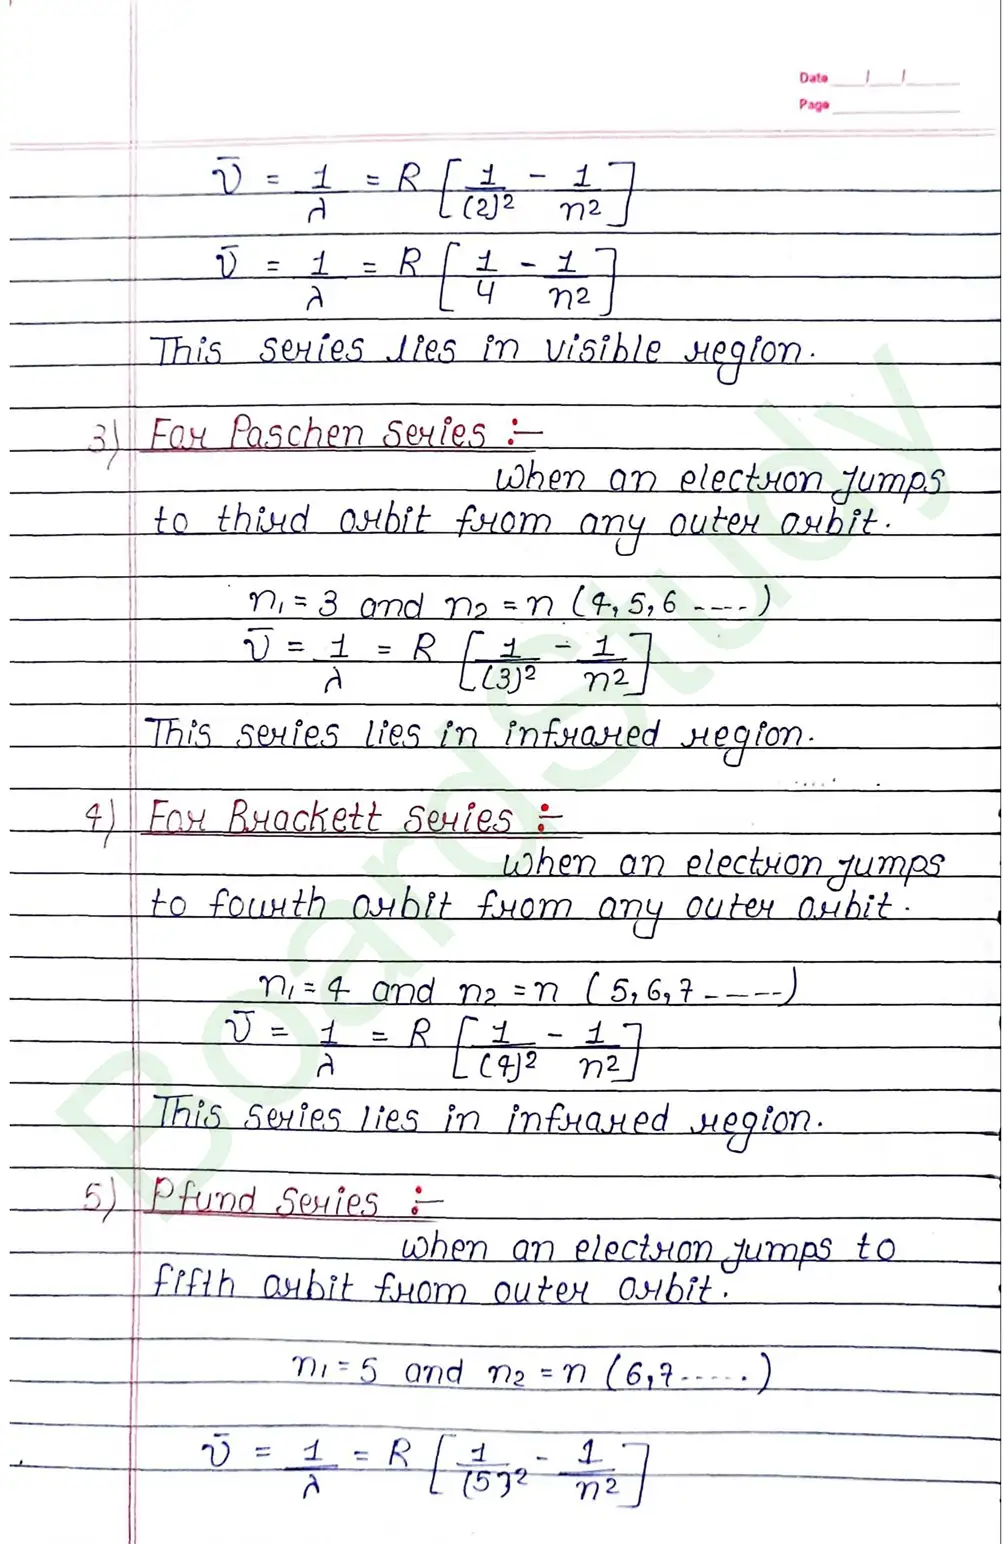 Date ___/___/___
Page ___
ν̄ = 1/λ = R [1/(2)² - 1/n²]
ν̄ = 1/λ = R [1/4 - 1/n²]
This series lies in visible region.
3) For Paschen series :-
When an electron jumps
to third orbit from any outer orbit.
n₁ = 3 and n₂ = n (4, 5, 6 ----)
ν̄ = 1/λ = R [1/(3)² - 1/n²]
This series lies in infrared region.
4) For Brackett series :-
When an electron jumps
to fourth orbit from any outer orbit.
n₁ = 4 and n₂ = n (5, 6, 7 ----)
ν̄ = 1/λ = R [1/(4)² - 1/n²]
This series lies in infrared region.
5) Pfund series :-
When an electron jumps to
fifth orbit from outer orbit.
n₁ = 5 and n₂ = n (6, 7 .....)
ν̄ = 1/λ = R [1/(5)² - 1/n²]
BoardStudy